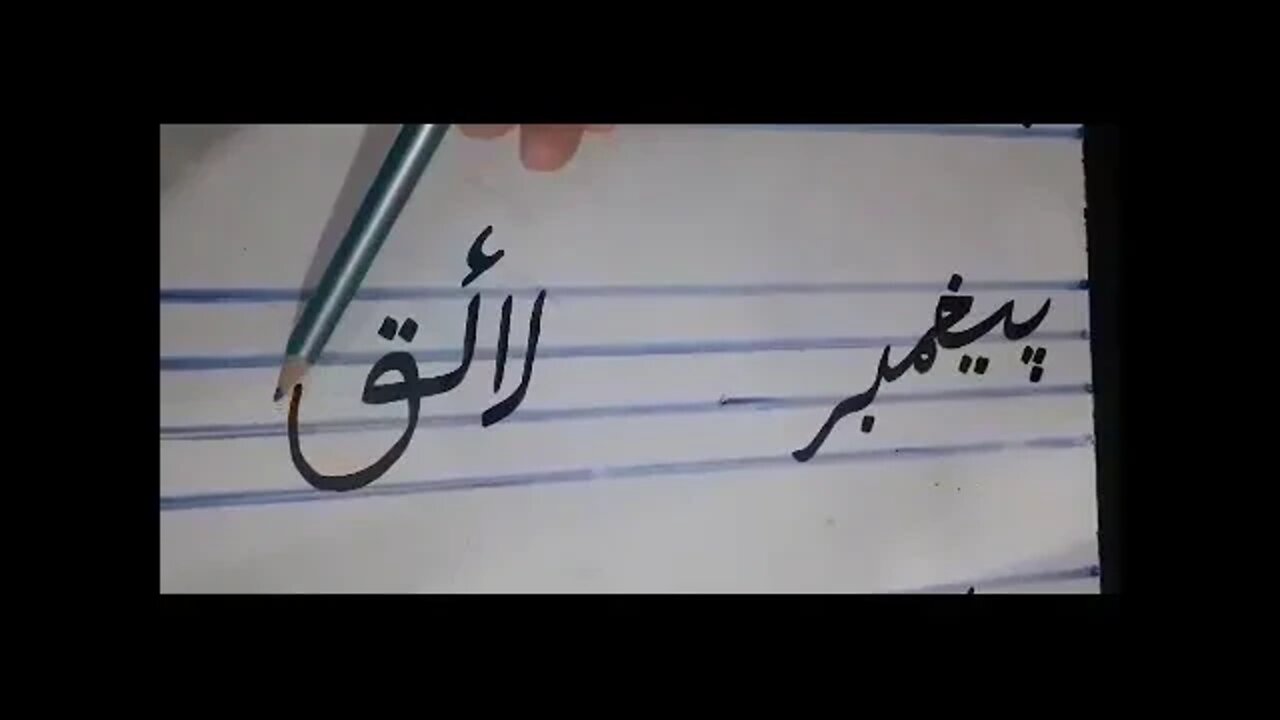 پیغمبر لائق